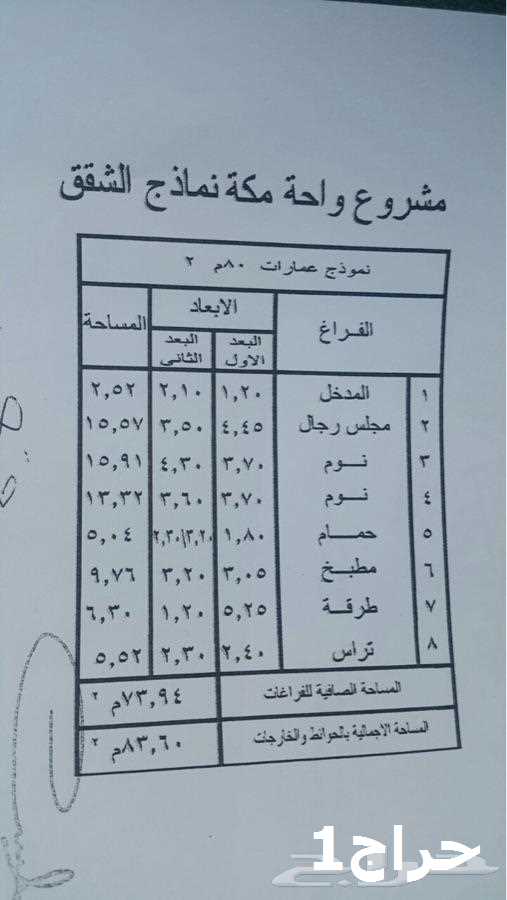 مشروع واحة مكة نماذج الشقق
نموذج عمارات ٨٠م ٢
الفراغ الابعاد المساحة
البعد الاول البعد الثانى
١ المدخل ١,٢٠ ٢,١٠ ٢,٥٢
٢ مجلس رجال ٤,٤٥ ٣,٥٠ ١٥,٥٧
٣ نـــوم ٣,٧٠ ٤,٣٠ ١٥,٩١
٤ نـــوم ٣,٧٠ ٣,٦٠ ١٣,٣٢
٥ حمـــام ١,٨٠ ٢,٣٠/٣,٢٠ ٥,٠٤
٦ مطبـــخ ٣,٠٥ ٣,٢٠ ٩,٧٦
٧ طرقـــة ٥,٢٥ ١,٢٠ ٦,٣٠
٨ تراس ٢,٤٠ ٢,٣٠ ٥,٥٢
المساحة الصافية للفراغات ٧٣,٩٤م ٢
المساحة الاجمالية بالحوائط والخارجات ٨٣,٦٠م ٢
حراج1
حراج